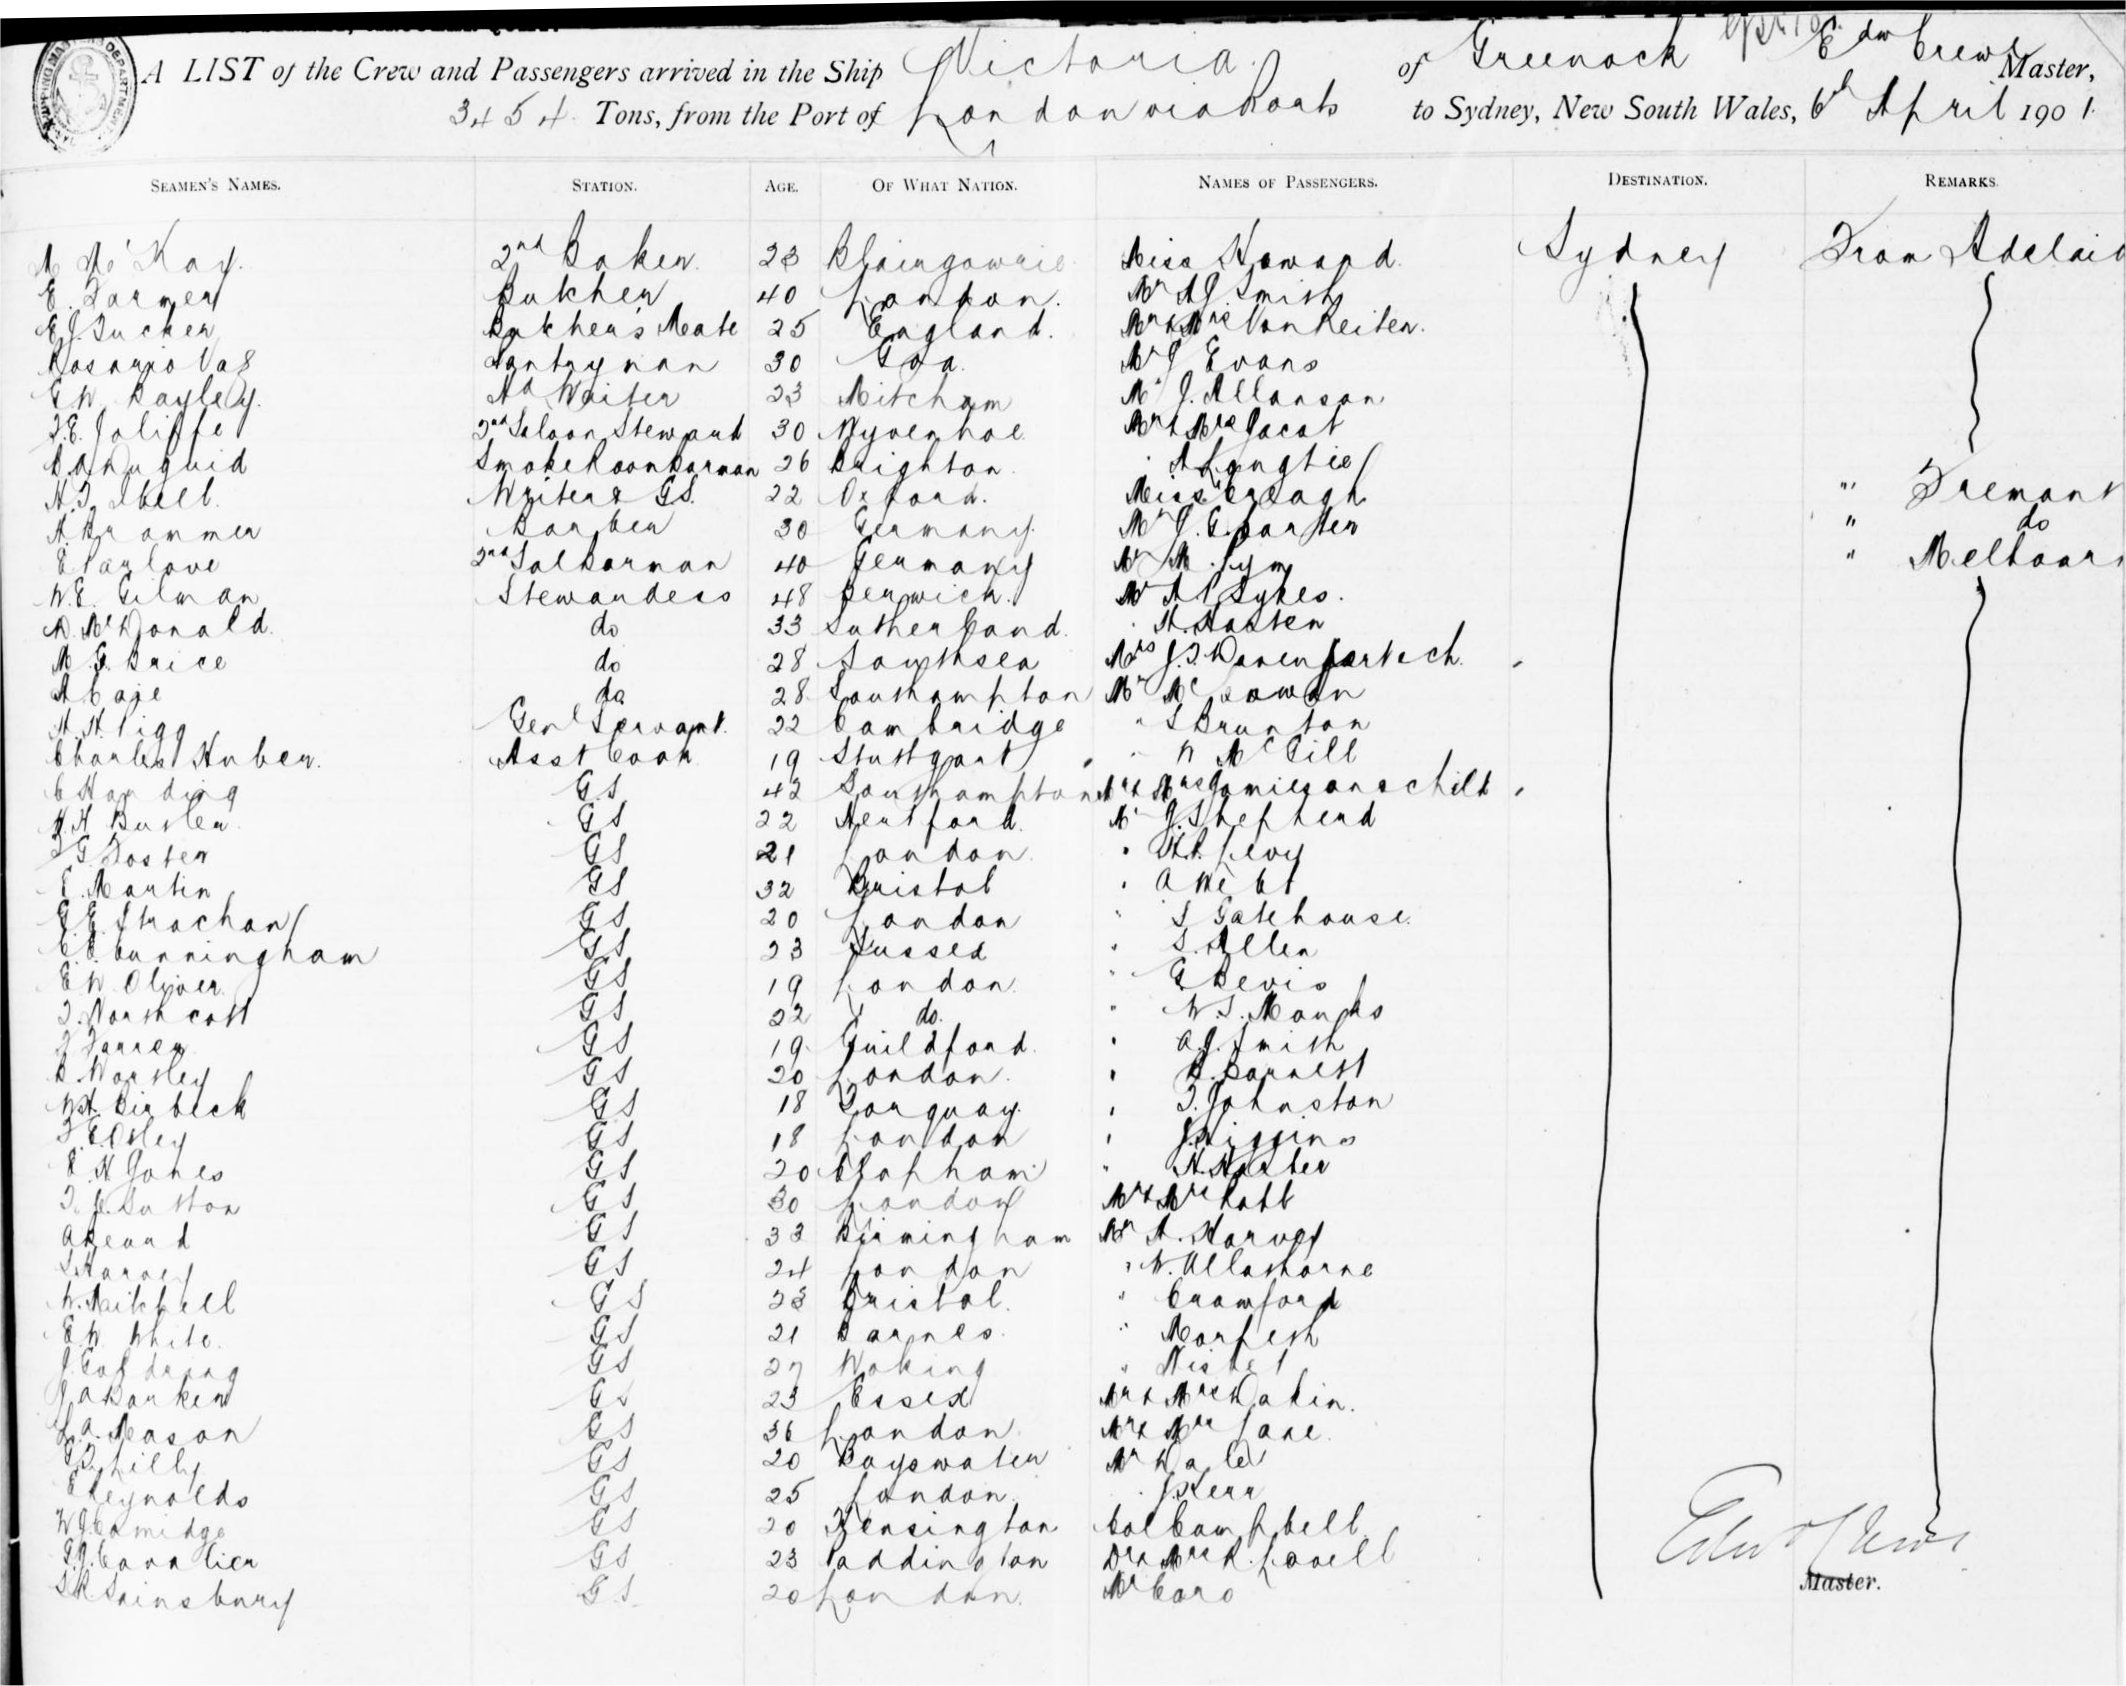 A LIST of the Crew and Passengers arrived in the Ship Victoria of Greenock Edw Crewe Master,
3454 Tons, from the Port of London via Ports to Sydney, New South Wales, 6th April 1901.
SEAMEN'S NAMES. STATION. AGE. OF WHAT NATION. NAMES OF PASSENGERS. DESTINATION. REMARKS.
A McKay. 2nd Baker. 23 Blairgowrie Miss Howard. Sydney From Adelaid
E. Farmer Butcher 40 London. Mr A J Smith
E J Tucker Butcher's Mate 25 England. Mr & Mrs Von Reiten.
Rosario Vaz Pantryman 30 Goa. Mr J Evans
G W Bayley. Hd Waiter 23 Mitcham Mr J. Allanson
F.E. Joliffe 2nd Saloon Steward 30 Wyvenhoe Mr & Mrs Jacot
Duguid Smoke Room Barman 26 Brighton. " A Langtie
H. T. Ibell. Writer & GS. 22 Oxford. Miss Creagh " Fremant
A. Brammer Barber 30 Germany. Mr J. G. Carter " do
E Parlove 2nd Sal Barman 40 Germany Mr M. Sym " Melbourn
W. E. Gilman Stewardess 48 Berwick. Mr A Sykes.
D. McDonald. do 33 Sutherland. " H. Hasten
M. G. Price do 28 Southsea Mrs J. T. Davenport & ch.
A Cage do 28 Southampton Mr McCowan
H. H. Pigg Genl Servant. 22 Cambridge " S Brunton
Charles Huber. Asst Cook 19 Stuttgart " W McGill
C Harding GS 42 Southampton Mr & Mrs Jamieson & child
H. H Butler. GS 22 Hertford. Mr J. Shepherd
F G Foster GS 21 London. " Levy
E. Martin GS 32 Bristol " A
G. E. Strachan GS 20 London " S Gatehouse.
C. C. Cunningham GS 23 Sussex " S. Allen
E. W. Oliver. GS 19 London. " G Bevis
T. Northcott GS 22 do. " W S. Monks
F Farrer GS 19 Guildford. " A J. Smith
B. Worsley GS 20 London. " H. Barnett
W H. Birbeck GS 18 Torquay. " T. Johnston
F. E. Oxley GS 18 London " J. Higgins
E. H Jones GS 20 Clapham " H. Harter
T. C. Dutton GS 30 London Mr & Mrs Robb
A Beard GS 33 Birmingham Mr A. Harvey
S Harvey GS 24 London " W. Ullathorne
W. Mitchell GS 23 Bristol. " Crawford
E W White. GS 21 Barnes. " Morpeth
J. Goldring GS 27 Woking " Nisbet
J A Barker GS 23 Essex Mr & Mrs Dakin.
L. A. Mason GS 36 London. Mr & Mrs Lane.
G Philly GS 20 Bayswater Mr Dale
E Reynolds GS 25 London. " J. Kerr
W J Camidge GS 20 Kensington Col Campbell
G. J. Cavalier GS 23 Paddington Dr & Mrs R. Lovell
S R Sainsbury GS 20 London. Mr Caro
Edw Crewe
Master.